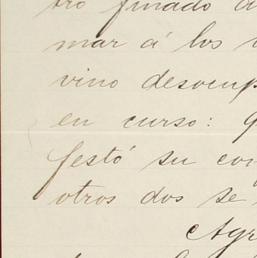 tro finado
mar á los
vino desemp
en curso:
festó su con
otros dos se
Agr